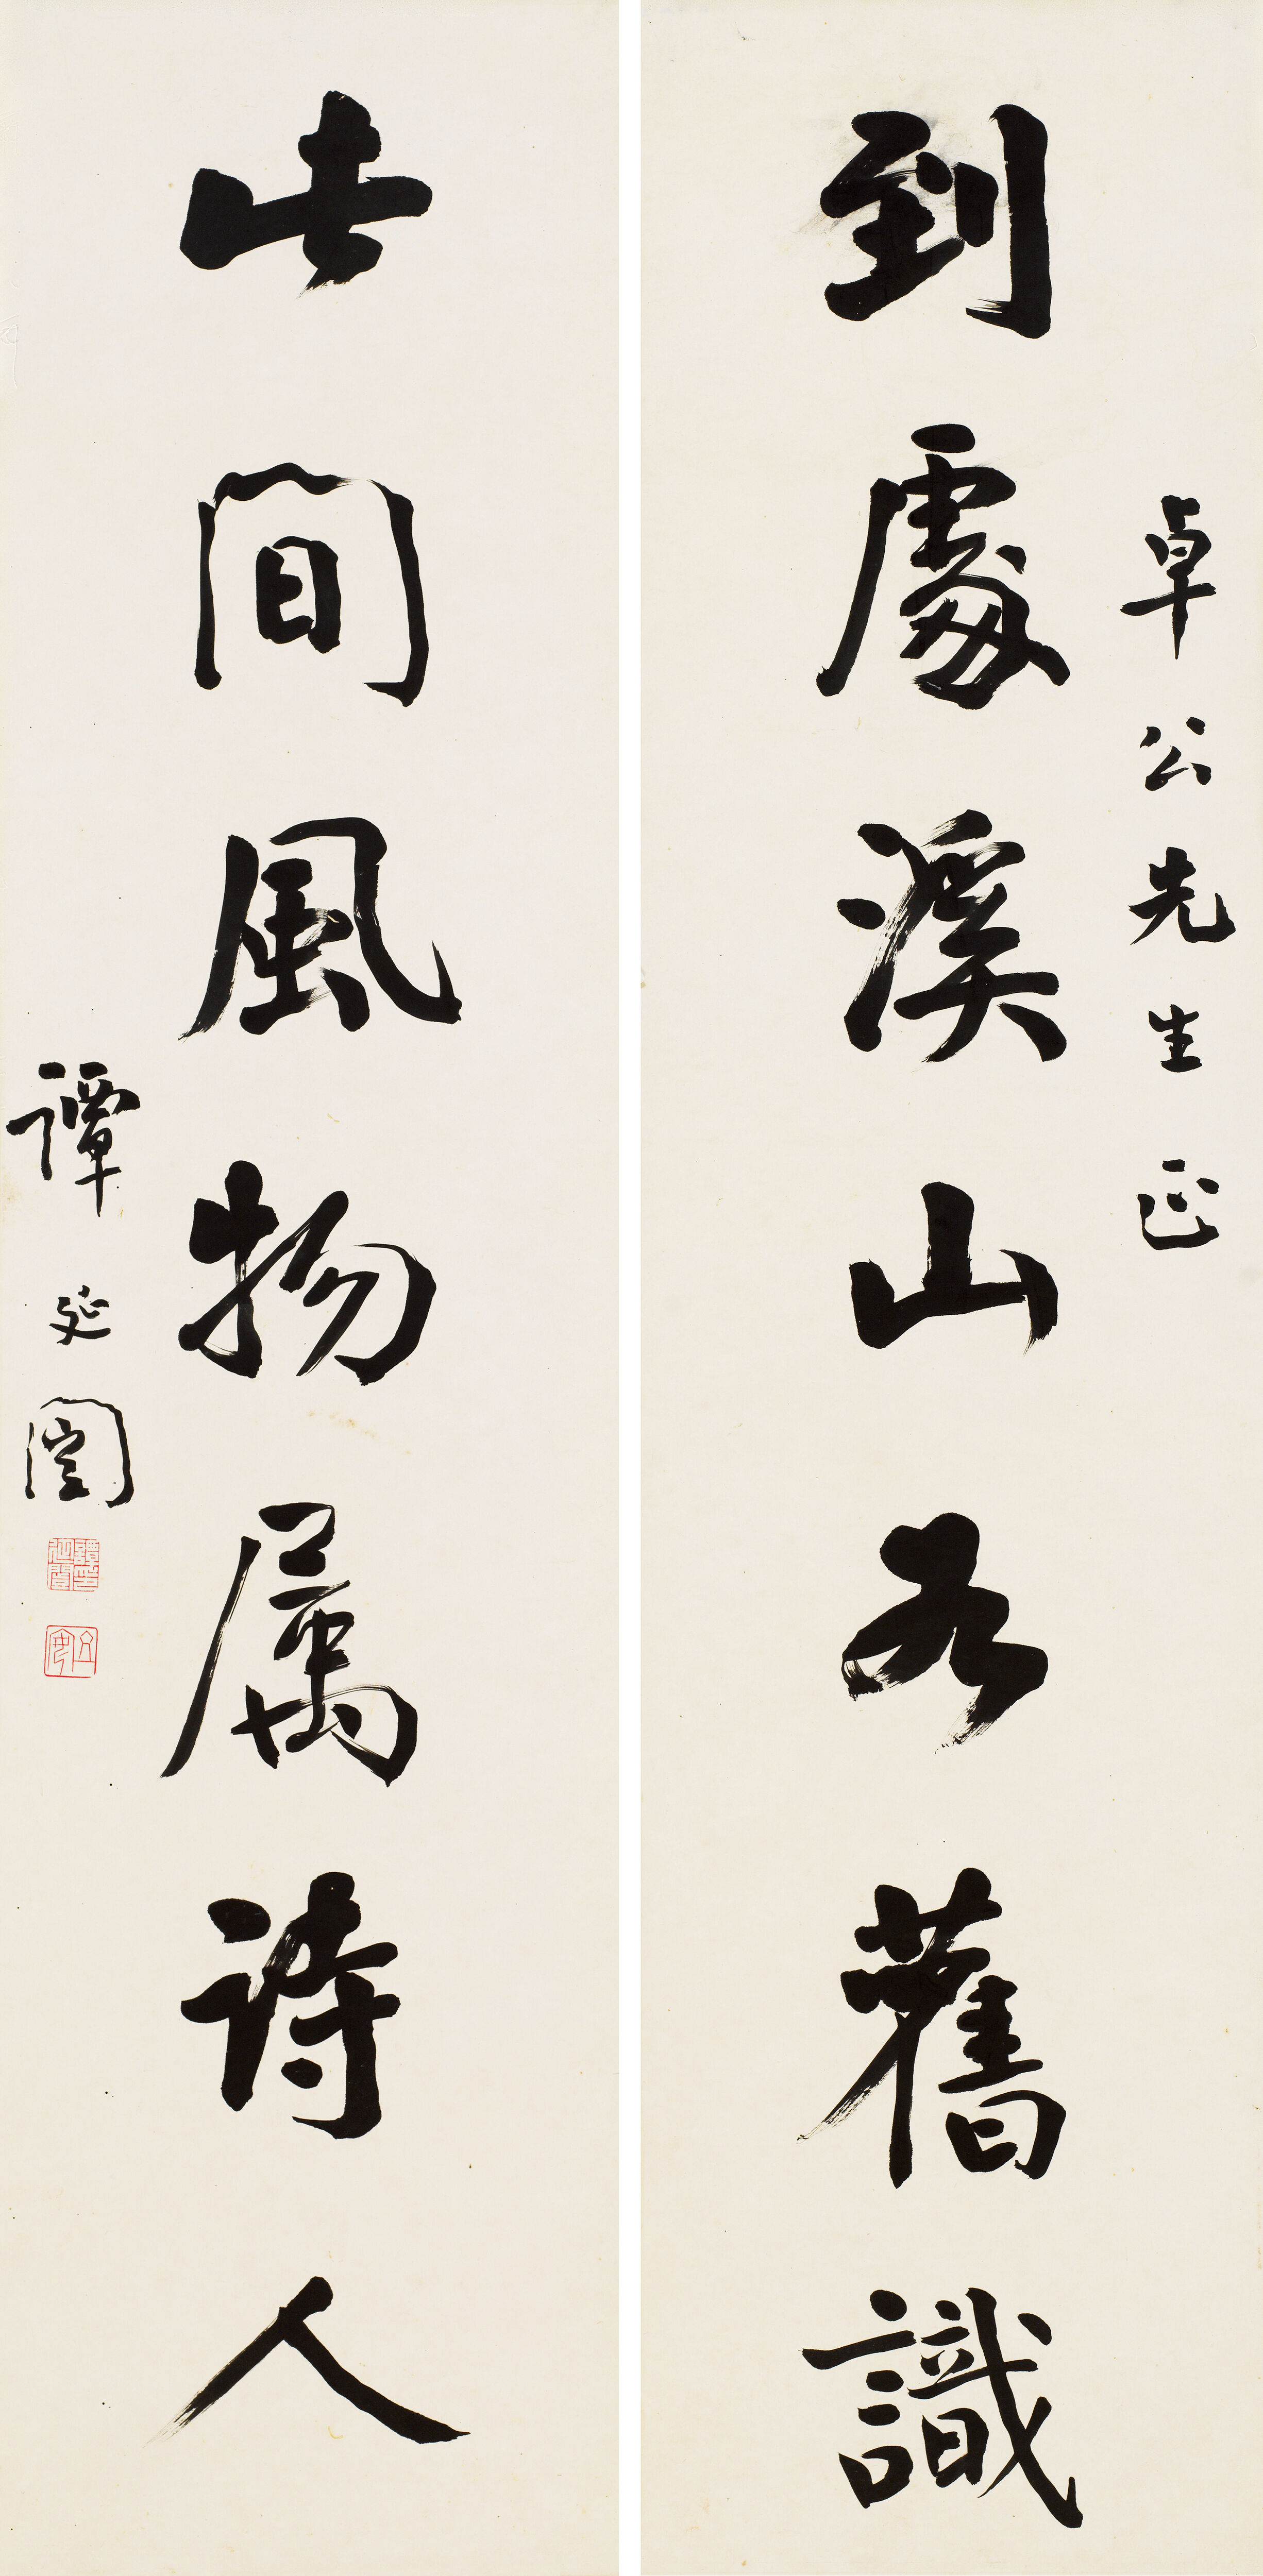 卓公先生正
到處溪山如舊識
此間風物屬詩人
譚延闓
譚延闓印